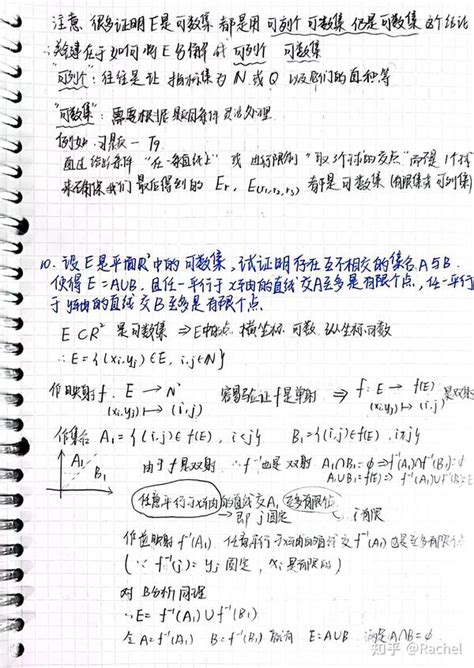 注意 很多证明E是可数集 都是用 可列个 可数集 仍是可数集 这个结论
关键在于如何将E分解成 可列个 可数集
"可列个": 往往是让 指标集为 N 或 Q 以及它们的直积等
"可数集": 需要根据题目条件 处理
例如 习题一 T9
通过 条件 "在一条直线上" 或 "取3个球的交点" 而不是1个
来确保我们最后得到的 Er, E(r1,r2,r3) 都是可数集 (有限集或可列集)
10. 设E是平面R²中的可数集, 试证明存在互不相交的集合A与B
使得E=A∪B, 且任一平行于x轴的直线交A至多是有限个点, 任一平行
于y轴的直线交B至多是有限个点.
E⊂R² 是可数集 ⇒ E中的点 横坐标可数, 纵坐标可数
∴E={(xi,yj)∈E, i,j∈N}
作映射 f: E → N² 容易验证f是单射 ⇒ f: E → f(E) 是双射
(xi,yj)↦(i,j) (xi,yj)↦(i,j)
作集合 A1={(i,j)∈f(E), i<j} B1={(i,j)∈f(E), i≥j}
A1 B1
由于f是双射 ∴f⁻¹也是双射 A1∩B1=ϕ ⇒ f⁻¹(A1)∩f⁻¹(B1)=ϕ
A1∪B1=f(E) ⇒ f⁻¹(A1)∪f⁻¹(B1)=E
任意平行于x轴的直线交A1 至多有限位
即 j固定 i有限
作逆映射 f⁻¹(A1) 任意平行于x轴的直线交 f⁻¹(A1) 也是至多有限个
(∵ f⁻¹(j)=yj 固定, xi是有限的)
对B分析同理
∴E=f⁻¹(A1)∪f⁻¹(B1)
令A=f⁻¹(A1) B=f⁻¹(B1) 即有 E=A∪B 满足A∩B=ϕ
知乎 @Rachel